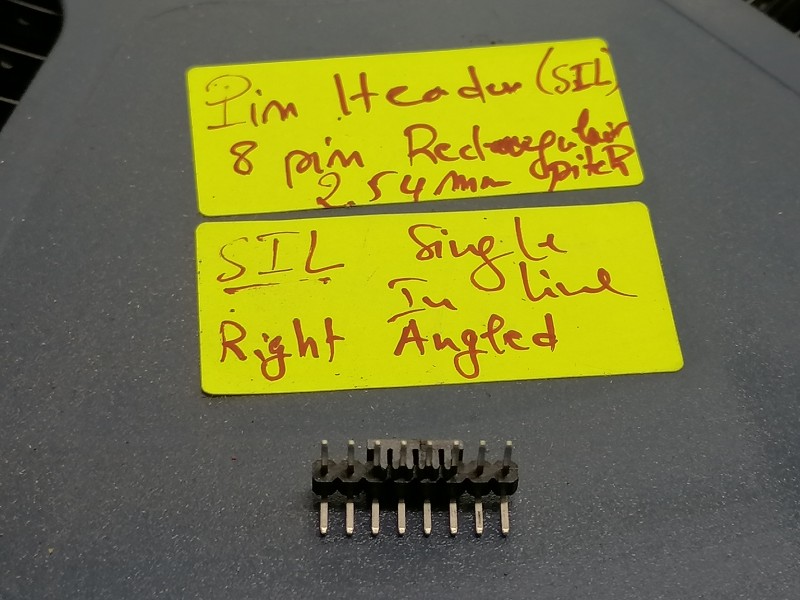 Pin Header (SIL)
8 pin Rectangular
2.54 mm pitch
SIL Single
In line
Right Angled